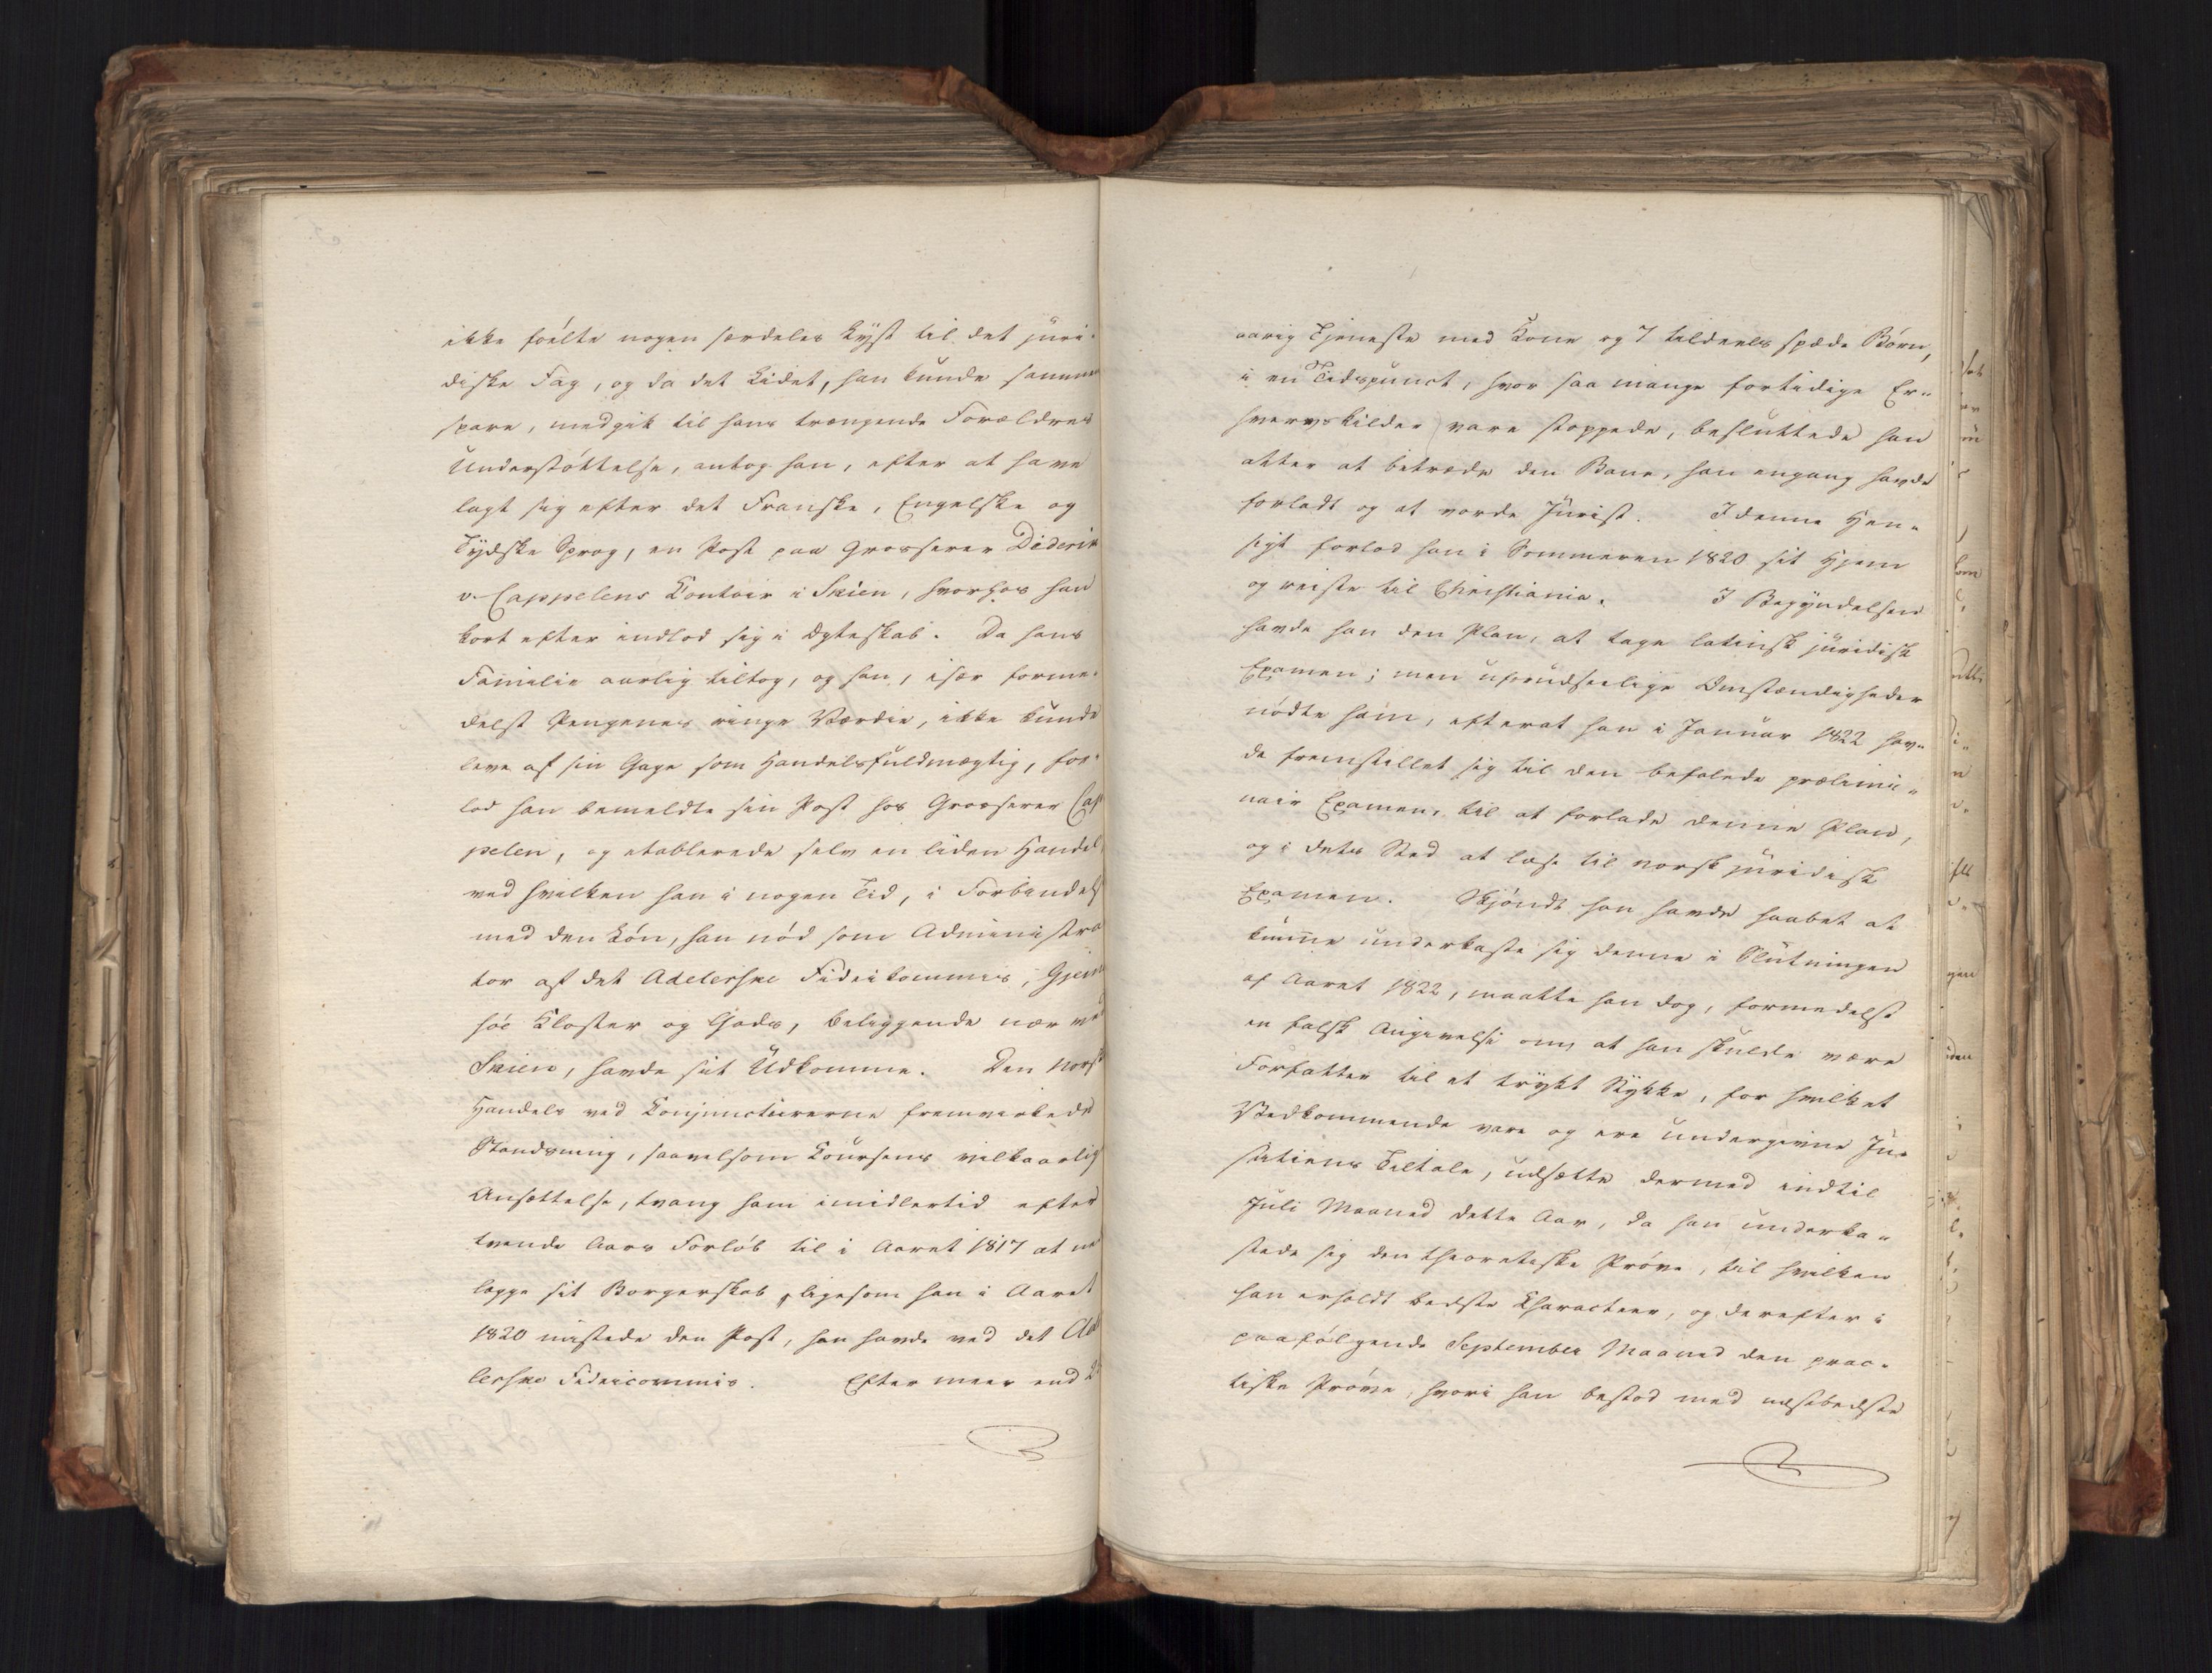 ikke følte nogen særdeles Lyst til det juri-
diske Fag, og da det Lidet, han kunde sammen
spare, medgik til hans trængende Forældres
Understøttelse, antog han, efter at have
lagt sig efter det Franske, Engelske og
Tydske Sprog, en Post paa Grosserer Diderik
v. Cappelens Contoir i Skien, hvorhos han
kort efter indlod sig i Ægteskab. Da hans
Familie aarlig tiltog, og han, især forme-
delst Pengenes ringe Værdie, ikke kunde
leve af sin Gage som Handelsfuldmægtig, for-
lod han bemeldte sin Post hos Grosserer Cap
pelen, og etablerede selv en liden Handel,
ved hvilken han i nogen Tid, i Forbindelse
med den Løn, han nød som Administra
tor af det Adelerske Fideikommis, Gjem
søe Kloster og Gods, beliggende nær ved
Skien, havde sit Udkomme. Den norske
Handels ved Conjuncturerne fremvirkede
Standsning, saavelsom Coursens vilkaarlige
Ansættelse, tvang ham imidlertid efter
tvende Aars Forløb til i Aaret 1817 at ned
lægge sit Borgerskab, ligesom han i Aaret
1820 mistede den Post, han havde ved det Ade
lerske Fideicommis. Efter meer end 2
aarig Tjeneste med Kone og 7 tildeels spæde Børn,
i en Tidspunct, hvor saa mange fortidige Er-
hvervskilder vare stoppede, besluttede han
atter at betræde den Bane, han engang havde
forladt og at vorde Jurist. I denne Hen-
sigt forlod han i Sommeren 1820 sit Hjem
og reiste til Christiania. I Begyndelsen
havde han den Plan, at tage latinsk juridisk
Examen; men uforudseelige Omstændigheder
nødte ham, efterat han i Januar 1822 hav-
de fremstillet sig til den befalede prælimi-
nair Examen, til at forlade denne Plan,
og i dets Sted at læse til norsk juridisk
Examen. Skjøndt han havde haabet at
kunne underkaste sig denne i Slutningen
af Aaret 1822, maatte han dog, formedelst
en falsk Angivelse om, at han skulde være
Forfatter til et trykt Stykke, for hvilket
Vedkommende vare og ere undergivne Ju-
stitiens Tiltale, udsætte dermed indtil
Juli Maaned dette Aar, da han underka-
stede sig den theoretiske Prøve, til hvilken
han erholdt bedste Characteer, og derefter i
paafølgende September Maaned den prac-
tiske Prøve, hvori han bestod med næstbedste